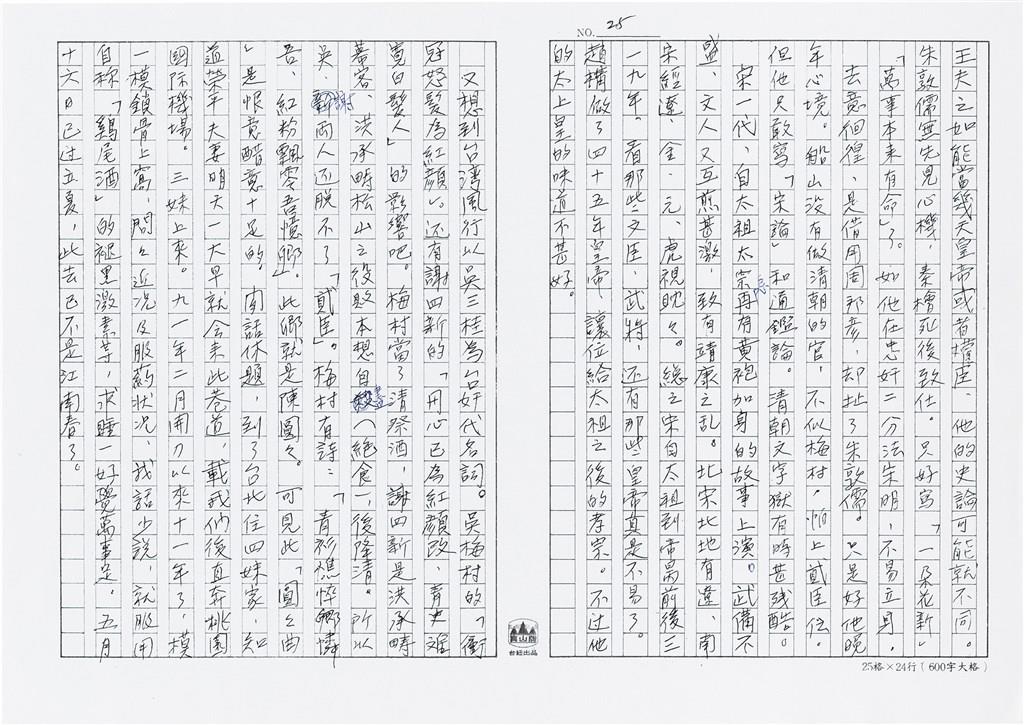 NO. 25
王夫之如能當幾天皇帝或者攝政,他的史論可能就不同。
朱敦儒無先見心機,秦檜死後致仕。只好寫「一朵花新」
「萬事本來有命」了。如他仕忠奸二分法朱明,不易立身,
去意徊徨,是借用周邦彥,却扯了朱敦儒。只是好他晚
年心境。船山沒有做清朝的官,不似梅村,怕上貳臣傳。
但他只敢寫「宋論」和通鑑論。清朝文字獄有時甚殘酷。
宋一代,自太祖太宗再有黃袍加身的故事上演。武備不
盛,文人又互煎甚激,致有靖康之亂。北宋北地有遼,南
宋經遼、金、元,虎視眈々。總之宋自太祖到帝昺前後三
一九年。看那些文臣、武將,還有那些皇帝真是不易了。
趙構做了四十五年皇帝 讓位給太祖之後的孝宗。不过他
的太上皇的味道不甚好。
又想到台灣風行以吳三桂為台奸代名詞。吳梅村的「衝
冠怒髮為紅顏」。还有謝四新的「丹心已為紅顏改,青史難
寬白髮人」的影響吧。梅村當了清祭酒,謝四新是洪承疇
幕客、洪承疇松山之役敗本想自盡(絕食一,後降清。所以
吳、謝兩人还脫不了「貳臣」。梅村有詩:「青衫憔悴卿憐
吾,紅粉飄零吾憶卿」。此卿就是陳圓々。可見此「圓々曲
」是恨意醋意十足的。閑話休題,到了台北住四妹家,知
道榮平夫妻明天一大早就会来此巷道,載我們後直奔桃園
國际機場。三妹上來。九一年二月開刀以來十一年了,模
一模鎖骨上窩,問々近况及服葯狀况,我話少說,就服用
自称「鷄尾酒」的褪黑激素等,求睡一好覺萬事足。五月
十六日已过立夏,此去已不是江南春了。
台紙出品
25格×24行(600字大格)